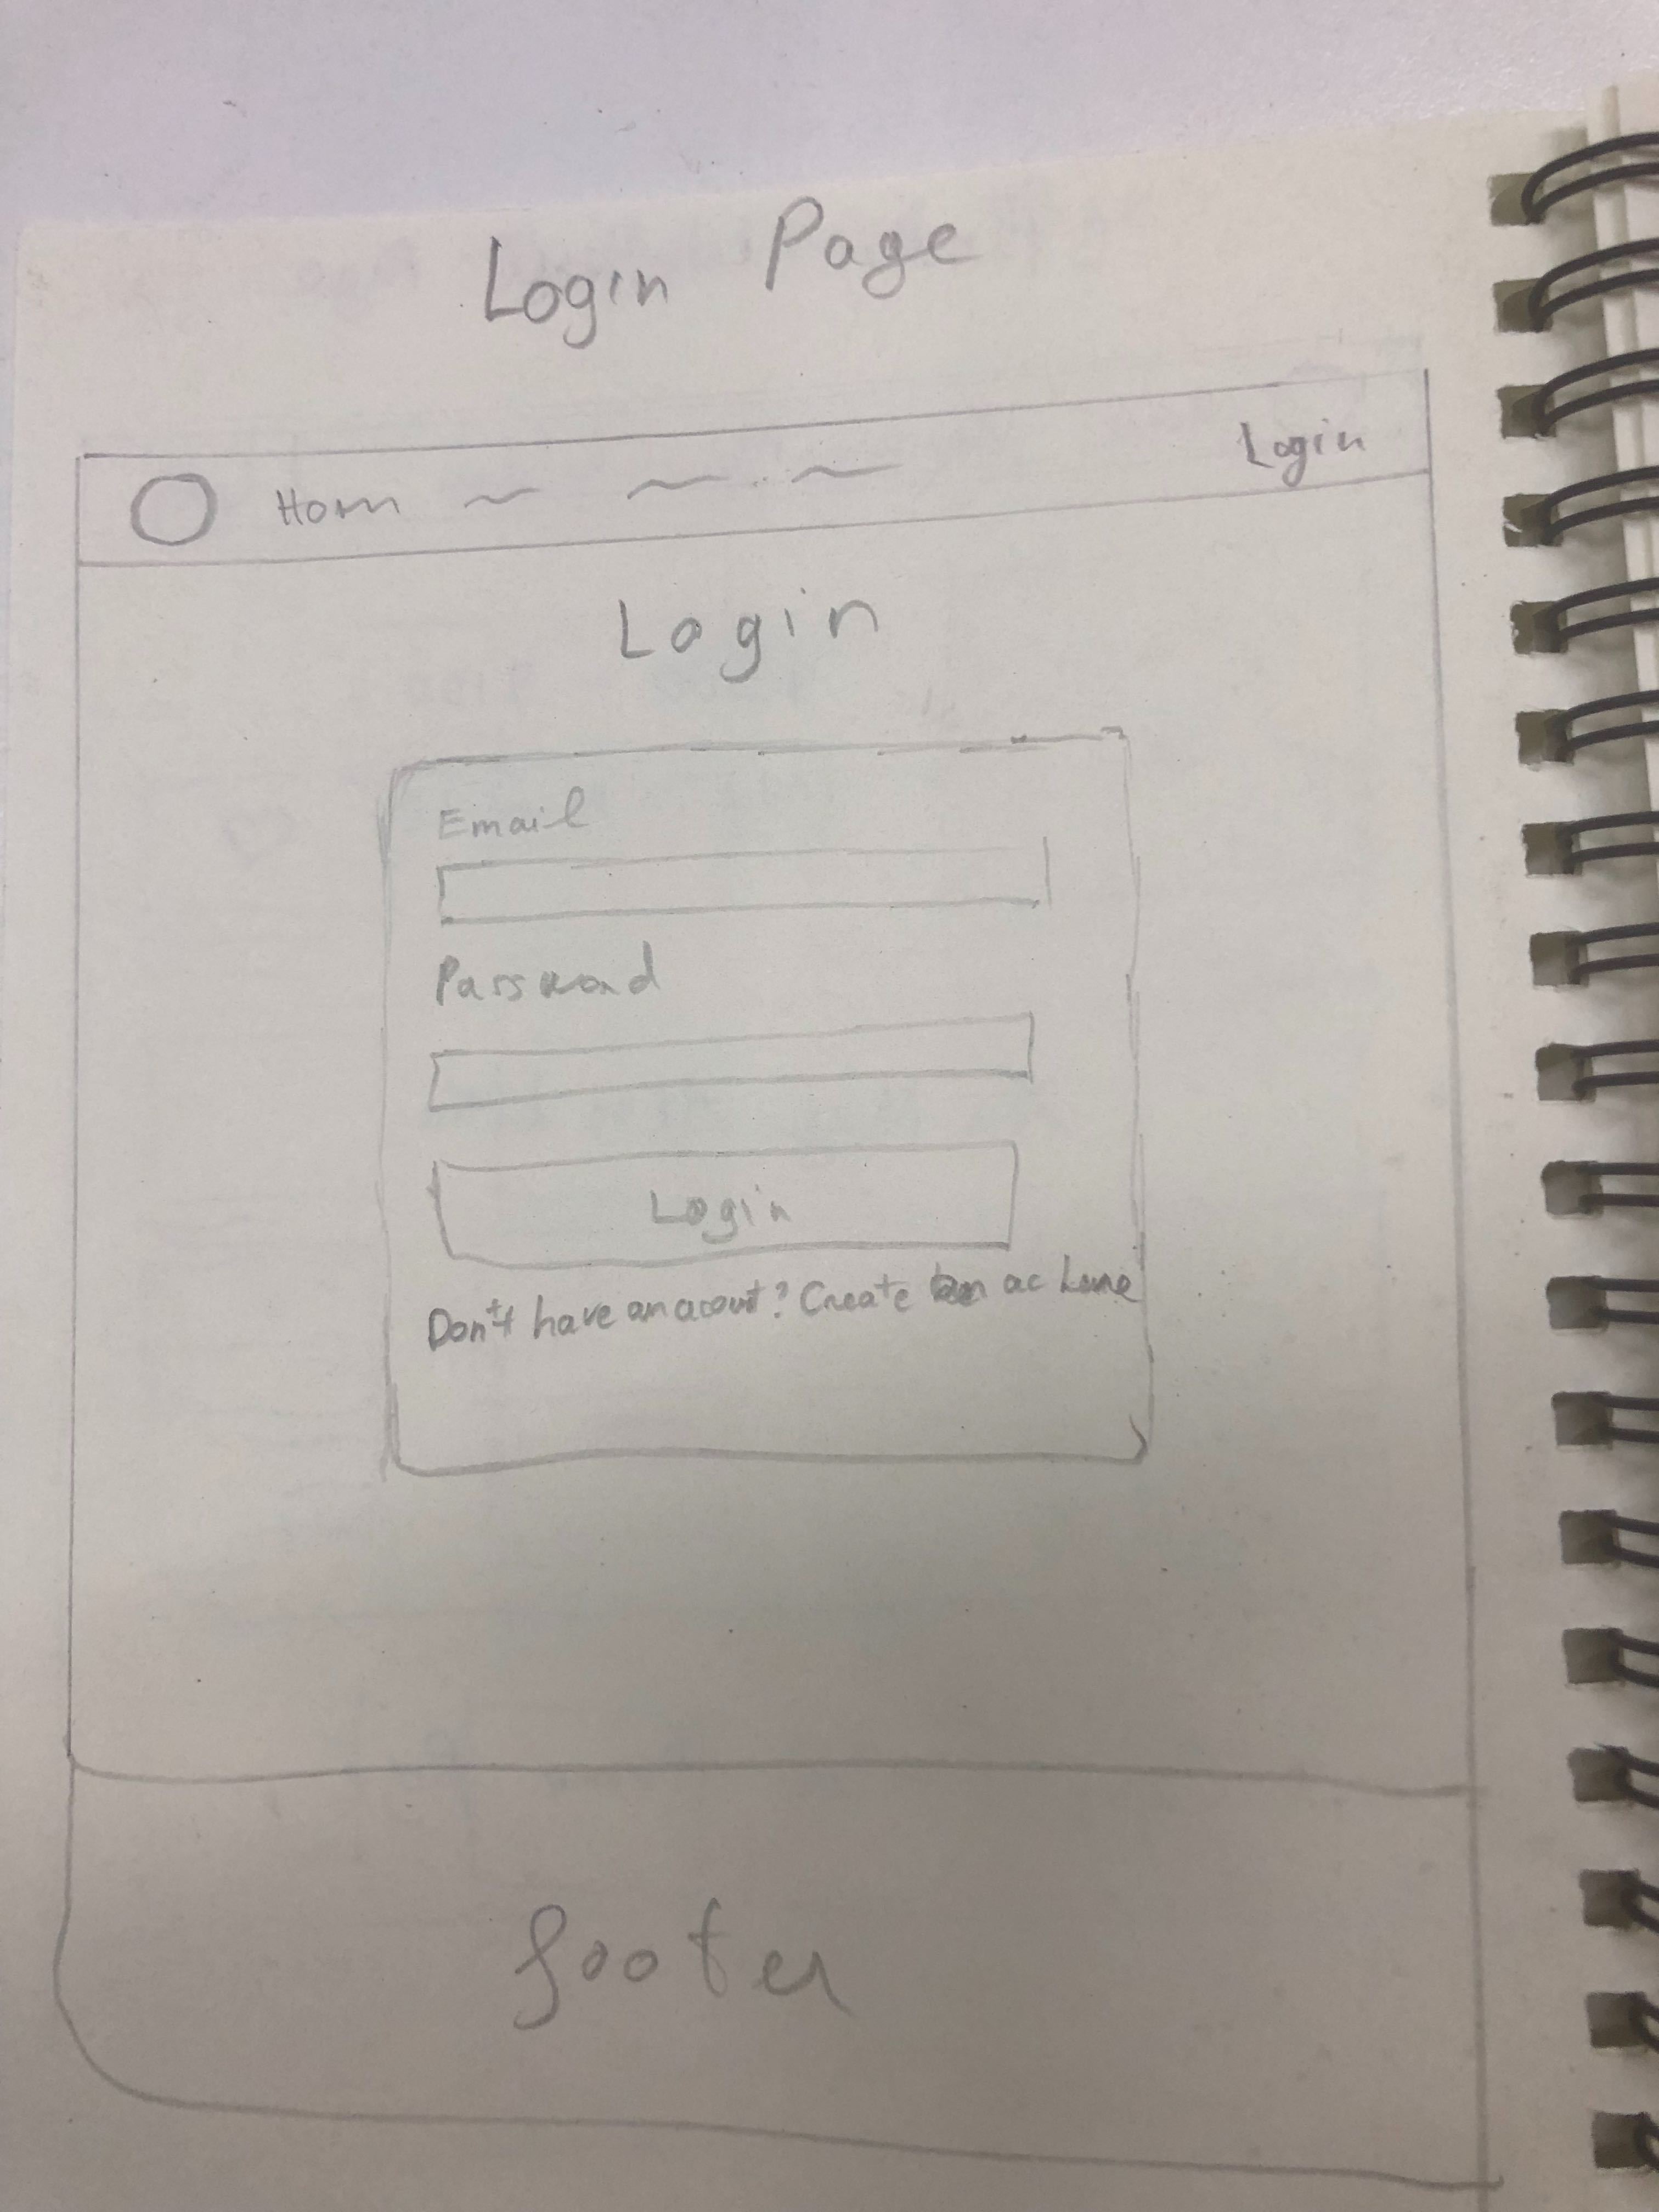 Login Page
Hom Login
Login
Email
Password
Login
Don't have an acount? Create an ac
footer